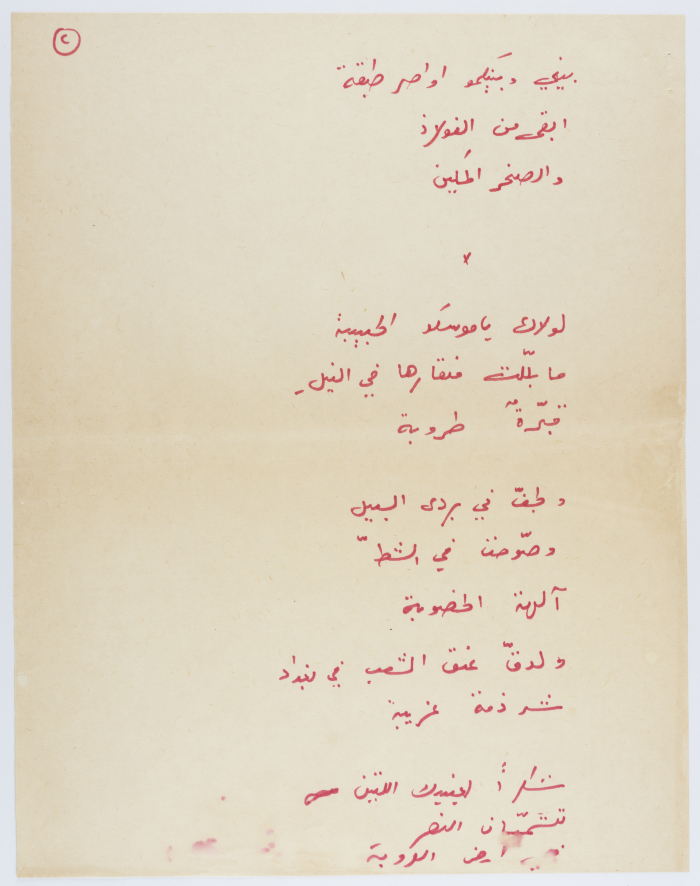 ٢
بيني وبينكمو اواصر طبقة
ابقى من الفولاذ
والصخر المكين
x
لولاك ياموسكو الحبيبة
ما بلّلت منقارها في النيلِ
قبّرةٌ طروبة
ولجفّ في بردى السبيل
وصوّحت في الشطّ
آلهة الخصوبة
ولدقّ عنق الشعب في بغداد
شرذمة غريبة
شكراً لعينيك اللتين
تشمّان النصر
ارض العروبة